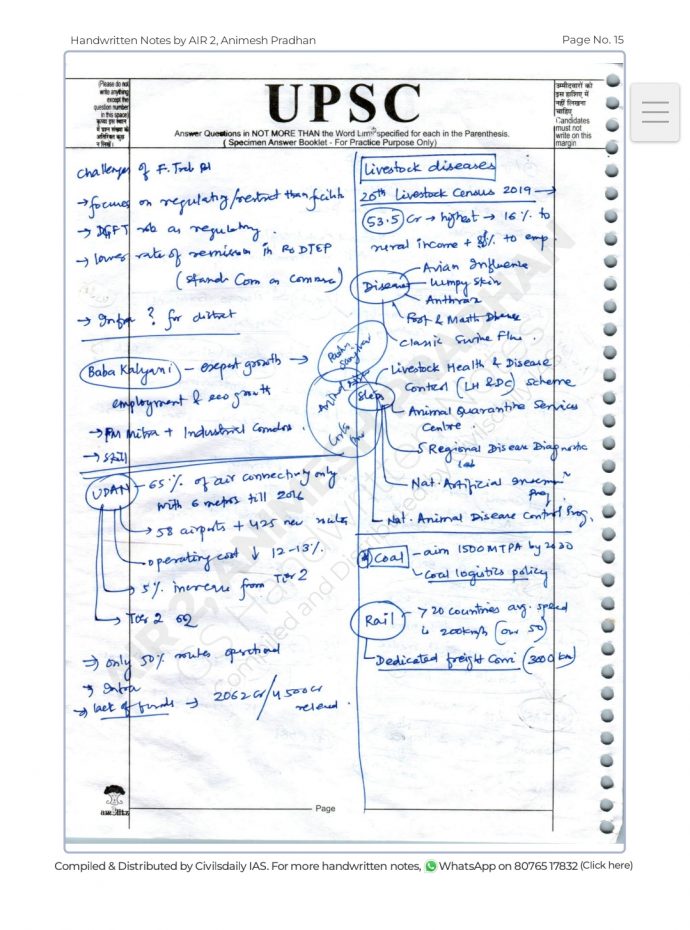 Handwritten Notes by AIR 2, Animesh Pradhan
Page No. 15
(Please do not
write anything
except the
question number
in this space)
कृपया इस स्थान
में प्रश्न संख्या के
अतिरिक्त कुछ
न लिखें।
UPSC
Answer Questions in NOT MORE THAN the Word Limit specified for each in the Parenthesis.
( Specimen Answer Booklet - For Practice Purpose Only)
उम्मीदवारों को
इस हाशिए में
नहीं लिखना
चाहिए
Candidates
must not
write on this
margin
Challenges of F. Trad
→ focuses on regulating/restrict than facilit
→ DGFT role as regulatory.
→ lower rate of remission in RoDTEP
(Stand. Com on Commerce)
→ Infra ? for district
Baba Kalyani - export growth →
employment & eco growth
→ PM Mitra + Industrial Corridors.
→ skill
UDAN - 65% of air connectivity only
with 6 metros till 2016
→ 58 airports + 425 new routes
→ operating cost ↓ 12-13%.
→ 5% increase from Tier 2
→ Tier 2
⇒ only 50% routes operational
⇒ Infra
⇒ lack of funds → 2062 Cr/4500 Cr
released.
Livestock diseases
20th Livestock Census 2019 →
53.5 Cr → highest → 16% to
rural income + 8% to emp.
Disease - Avian Influence
Lumpy Skin
Anthrax
Foot & Mouth Disease
Classic Swine Flue.
Steps - Livestock Health & Disease
Control (LH & DC) Scheme
Animal Quarantine Services
Centre.
5 Regional Disease Diagnostic
lab
Nat. Artificial
Prog
Nat. Animal Disease Control Prog.
Coal - aim 1500 MTPA by 2030
- Coal logistics policy
Rail - > 20 countries avg. speed
is 200km/h (our 50)
- Dedicated freight Corri (3000 km)
AIR 2, ANIMESH PRADHAN
Page
Compiled & Distributed by Civilsdaily IAS. For more handwritten notes, WhatsApp on 80765 17832 (Click here)